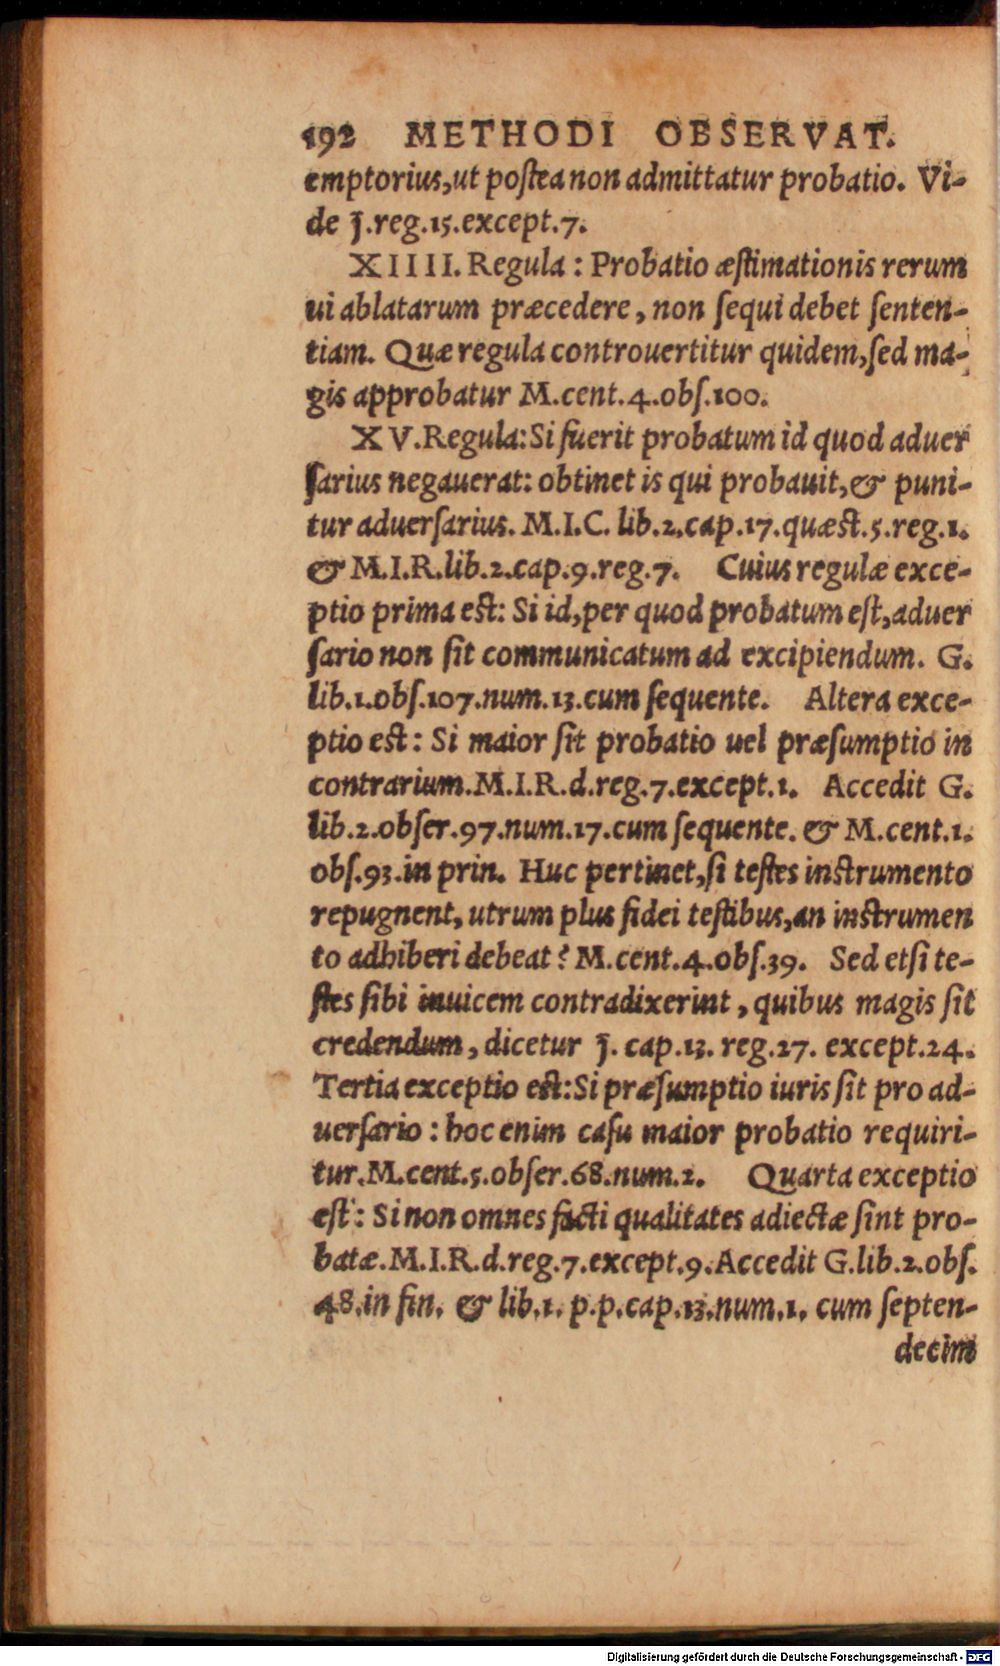 192 METHODI OBSERVAT.
emptorius, ut postea non admittatur probatio. Vi-
de J.reg.15.except.7.
XIIII. Regula: Probatio æstimationis rerum
ui ablatarum præcedere, non sequi debet senten-
tiam. Quæ regula controuertitur quidem, sed ma-
gis approbatur M.cent.4.obs.100.
XV.Regula: Si fuerit probatum id quod aduer
sarius negauerat: obtinet is qui probauit, & puni-
tur aduersarius. M.I.C. lib.2.cap.17.quæst.5.reg.1.
& M.I.R.lib.2.cap.9.reg.7. Cuius regulæ exce-
ptio prima est: Si id, per quod probatum est, aduer
sario non sit communicatum ad excipiendum. G.
lib.1.obs.107.num.13.cum sequente. Altera exce-
ptio est: Si maior sit probatio uel præsumptio in
contrarium.M.I.R.d.reg.7.except.1. Accedit G.
lib.2.obser.97.num.17.cum sequente. & M.cent.1.
obs.93.in prin. Huc pertinet, si testes instrumento
repugnent, utrum plus fidei testibus, an instrumen
to adhiberi debeat? M.cent.4.obs.39. Sed etsi te-
stes sibi inuicem contradixerint, quibus magis sit
credendum, dicetur J. cap.13. reg.27. except.24.
Tertia exceptio est: Si præsumptio iuris sit pro ad-
uersario: hoc enim casu maior probatio requiri-
tur.M.cent.5.obser.68.num.2. Quarta exceptio
est: Si non omnes facti qualitates adiectæ sint pro-
batæ.M.I.R.d.reg.7.except.9.Accedit G.lib.2.obs.
48.in fin. & lib.1. p.p.cap.13.num.1. cum septen-
decim
Digitalisierung gefördert durch die Deutsche Forschungsgemeinschaft - DFG